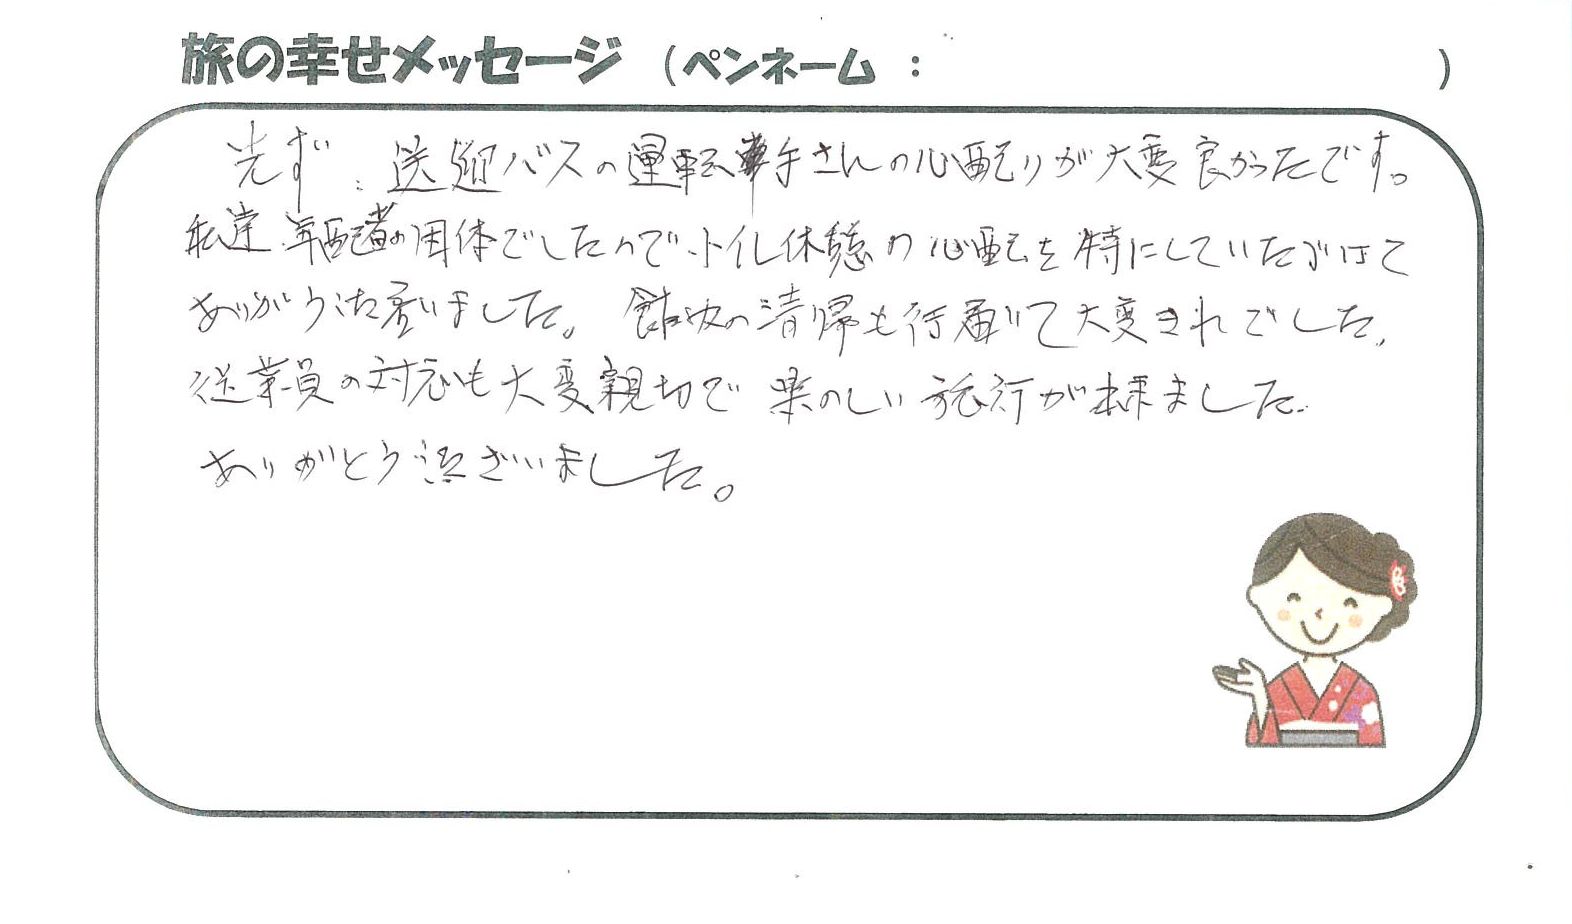 旅の幸せメッセージ (ペンネーム : )
先ず、送迎バスの運転手さんの心配りが大変良かったです。
私達年配者の団体でしたので、トイレ休憩の心配を特にしていただけて
ありがとうございました。館内の清掃も行届いて大変きれでした。
従業員の対応も大変親切で楽のしい旅行が出来ました。
ありがとう御ざいました。